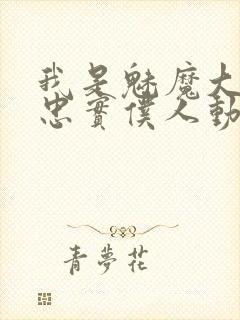 我是魅魔大
忠實僕人動
青夢花